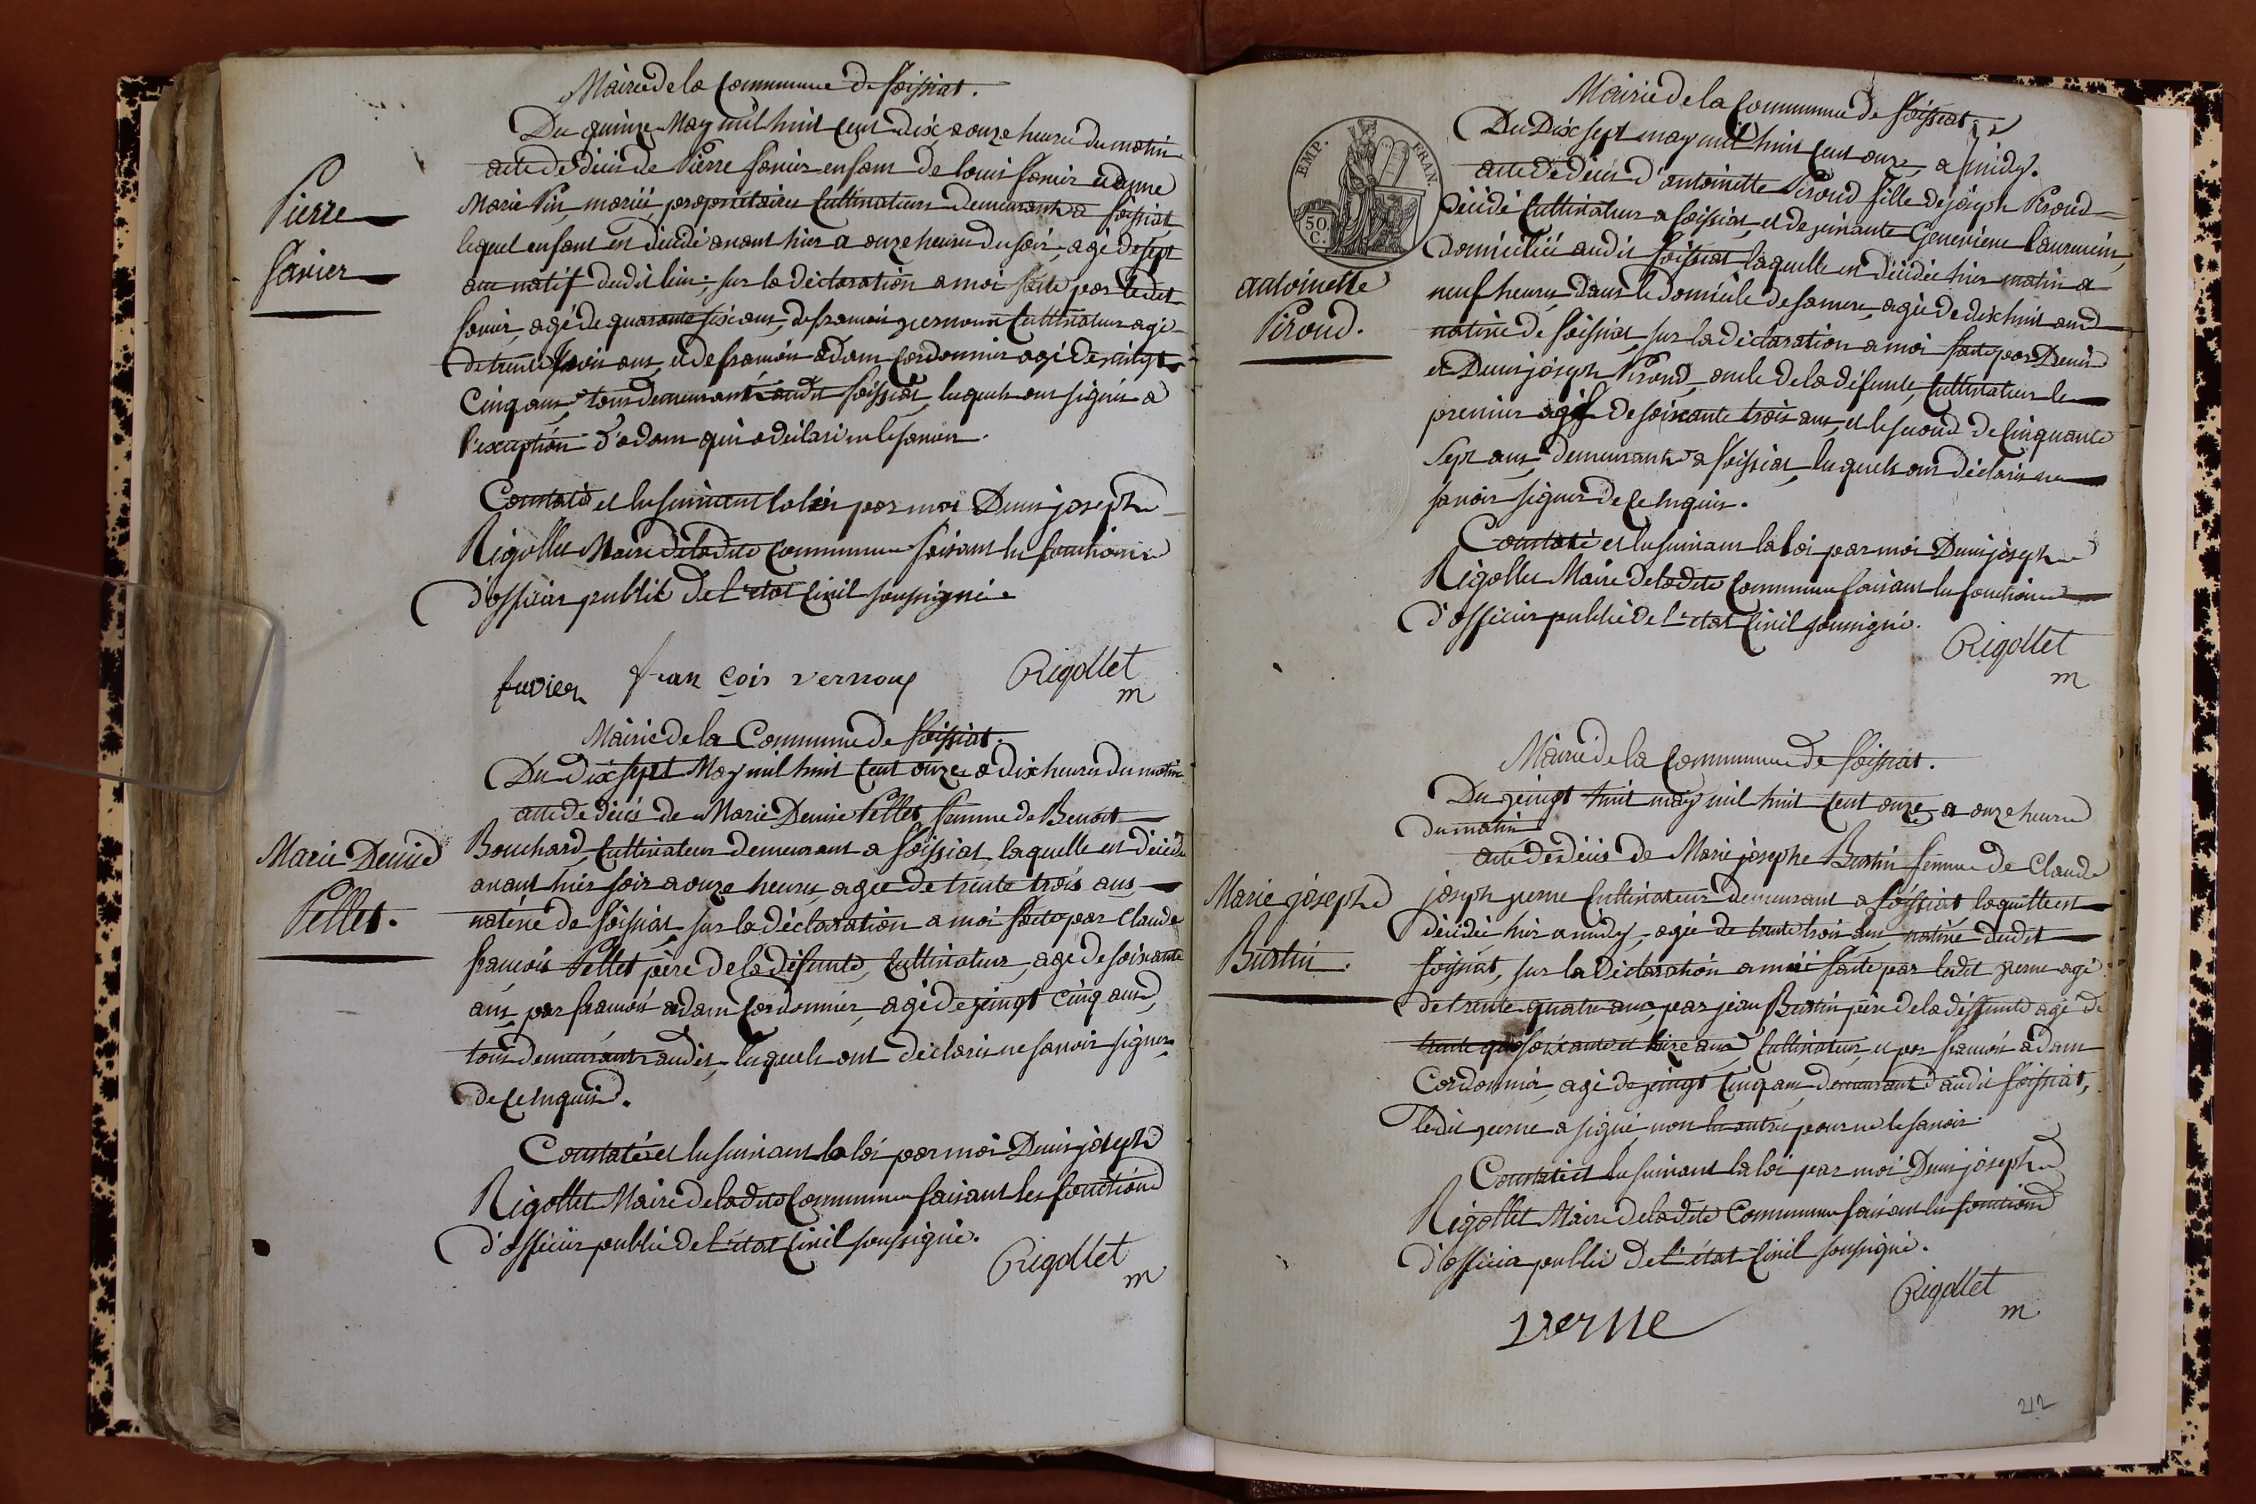 Mairie de la Commune de foissiat.
Du quinze May mil huit Cent dix a onze heures du matin
acte de décès de Pierre favier enfant de louis favier et anne
Marie Pin, mariés, proprietaires Cultivateurs demeurants a foissiat,
lequel enfant est décédé avant hier a onze heures du soir, agé de sept
ans natif dudit lieu; sur la déclaration a moi faite par ledit
favier, agé de quarante six ans, de françois vernoux Cultivateur agé
de trente trois ans, et de françois adam Cordonnier agé de vingt
Cinq ans, tous demeurant audit foissiat, lesquels ont signés a
l'exception d'adam qui a déclaré ne le savoir.
Constaté et lu suivant la loi par moi Denis joseph
Rigollet Maire de ladite Commune faisant les fonctions
d'officier public de l'état Civil soussigné.
favier françois vernoux Rigollet
m
Pierre
favier
Mairie de la Commune de foissiat.
Du dix sept May mil huit Cent onze a dix heures du matin
acte de décès de Marie Denise Pellet, femme de Benoit
Bouchard, Cultivateur demeurant a foissiat, laquelle est décédée
avant hier soir a onze heures, agée de trente trois ans
native de foissiat, sur la déclaration a moi faite par Claude
françois Pellet père de la défunte, Cultivateur, agé de soixante
ans, par françois adam Cordonnier, agé de vingt cinq ans,
tous demeurants audit, lesquels ont déclaré ne savoir signer
de Ce enquis.
Constaté et lu suivant la loi par moi Denis joseph
Rigollet Maire de ladite Commune faisant les fonctions
d'officier public de l'état Civil soussigné.
Rigollet
m
Marie Denise
Pellet.
EMP. FRAN.
50.
C.
Mairie de la Commune de foissiat.
Du Dix sept may mil huit Cent onze, a midy.
acte de décès d'antoinette Piroud fille de joseph Piroud
décédé Cultivateur a foissiat, et de vivante Genevieve
domiciliée audit foissiat laquelle est décédée hier matin a
neuf heures dans le domicile de sa mere, agée de dix huit ans
native de foissiat, sur la déclaration a moi faite par Denis
et Denis joseph Piroud, oncle de la défunte, Cultivateurs le
premier agé de soixante trois ans, et le second de Cinquante
Sept ans, demeurants a foissiat, lesquels ont déclaré ne
savoir signer de Ce enquis.
Constaté et lu suivant la loi par moi Denis joseph
Rigollet Maire de ladite Commune faisant les fonctions
d'officier public de l'état Civil soussigné.
Rigollet
m
antoinette
Piroud.
Mairie de la Commune de foissiat.
Du vingt huit may mil huit Cent onze a onze heures
du matin
acte de décès de Marie josephe Burtin femme de Claude
joseph verne Cultivateur demeurant a foissiat laquelle est
décédée hier a midy, agée de trente trois ans, native dudit
foissiat, sur la déclaration a moi faite par ledit verne agé
de trente quatre ans, par jean Burtin père de la deffunte agé de
soixante et ans, Cultivateur, et par françois adam
Cordonnier, agé de vingt Cinq ans, demeurant audit foissiat,
ledit verne a signé, non les autres pour ne le savoir.
Constaté et lu suivant la loi par moi Denis joseph
Rigollet Maire de ladite Commune faisant les fonctions
d'officier public de l'état Civil soussigné.
Rigollet
m
verne
Marie josephe
Burtin.
212